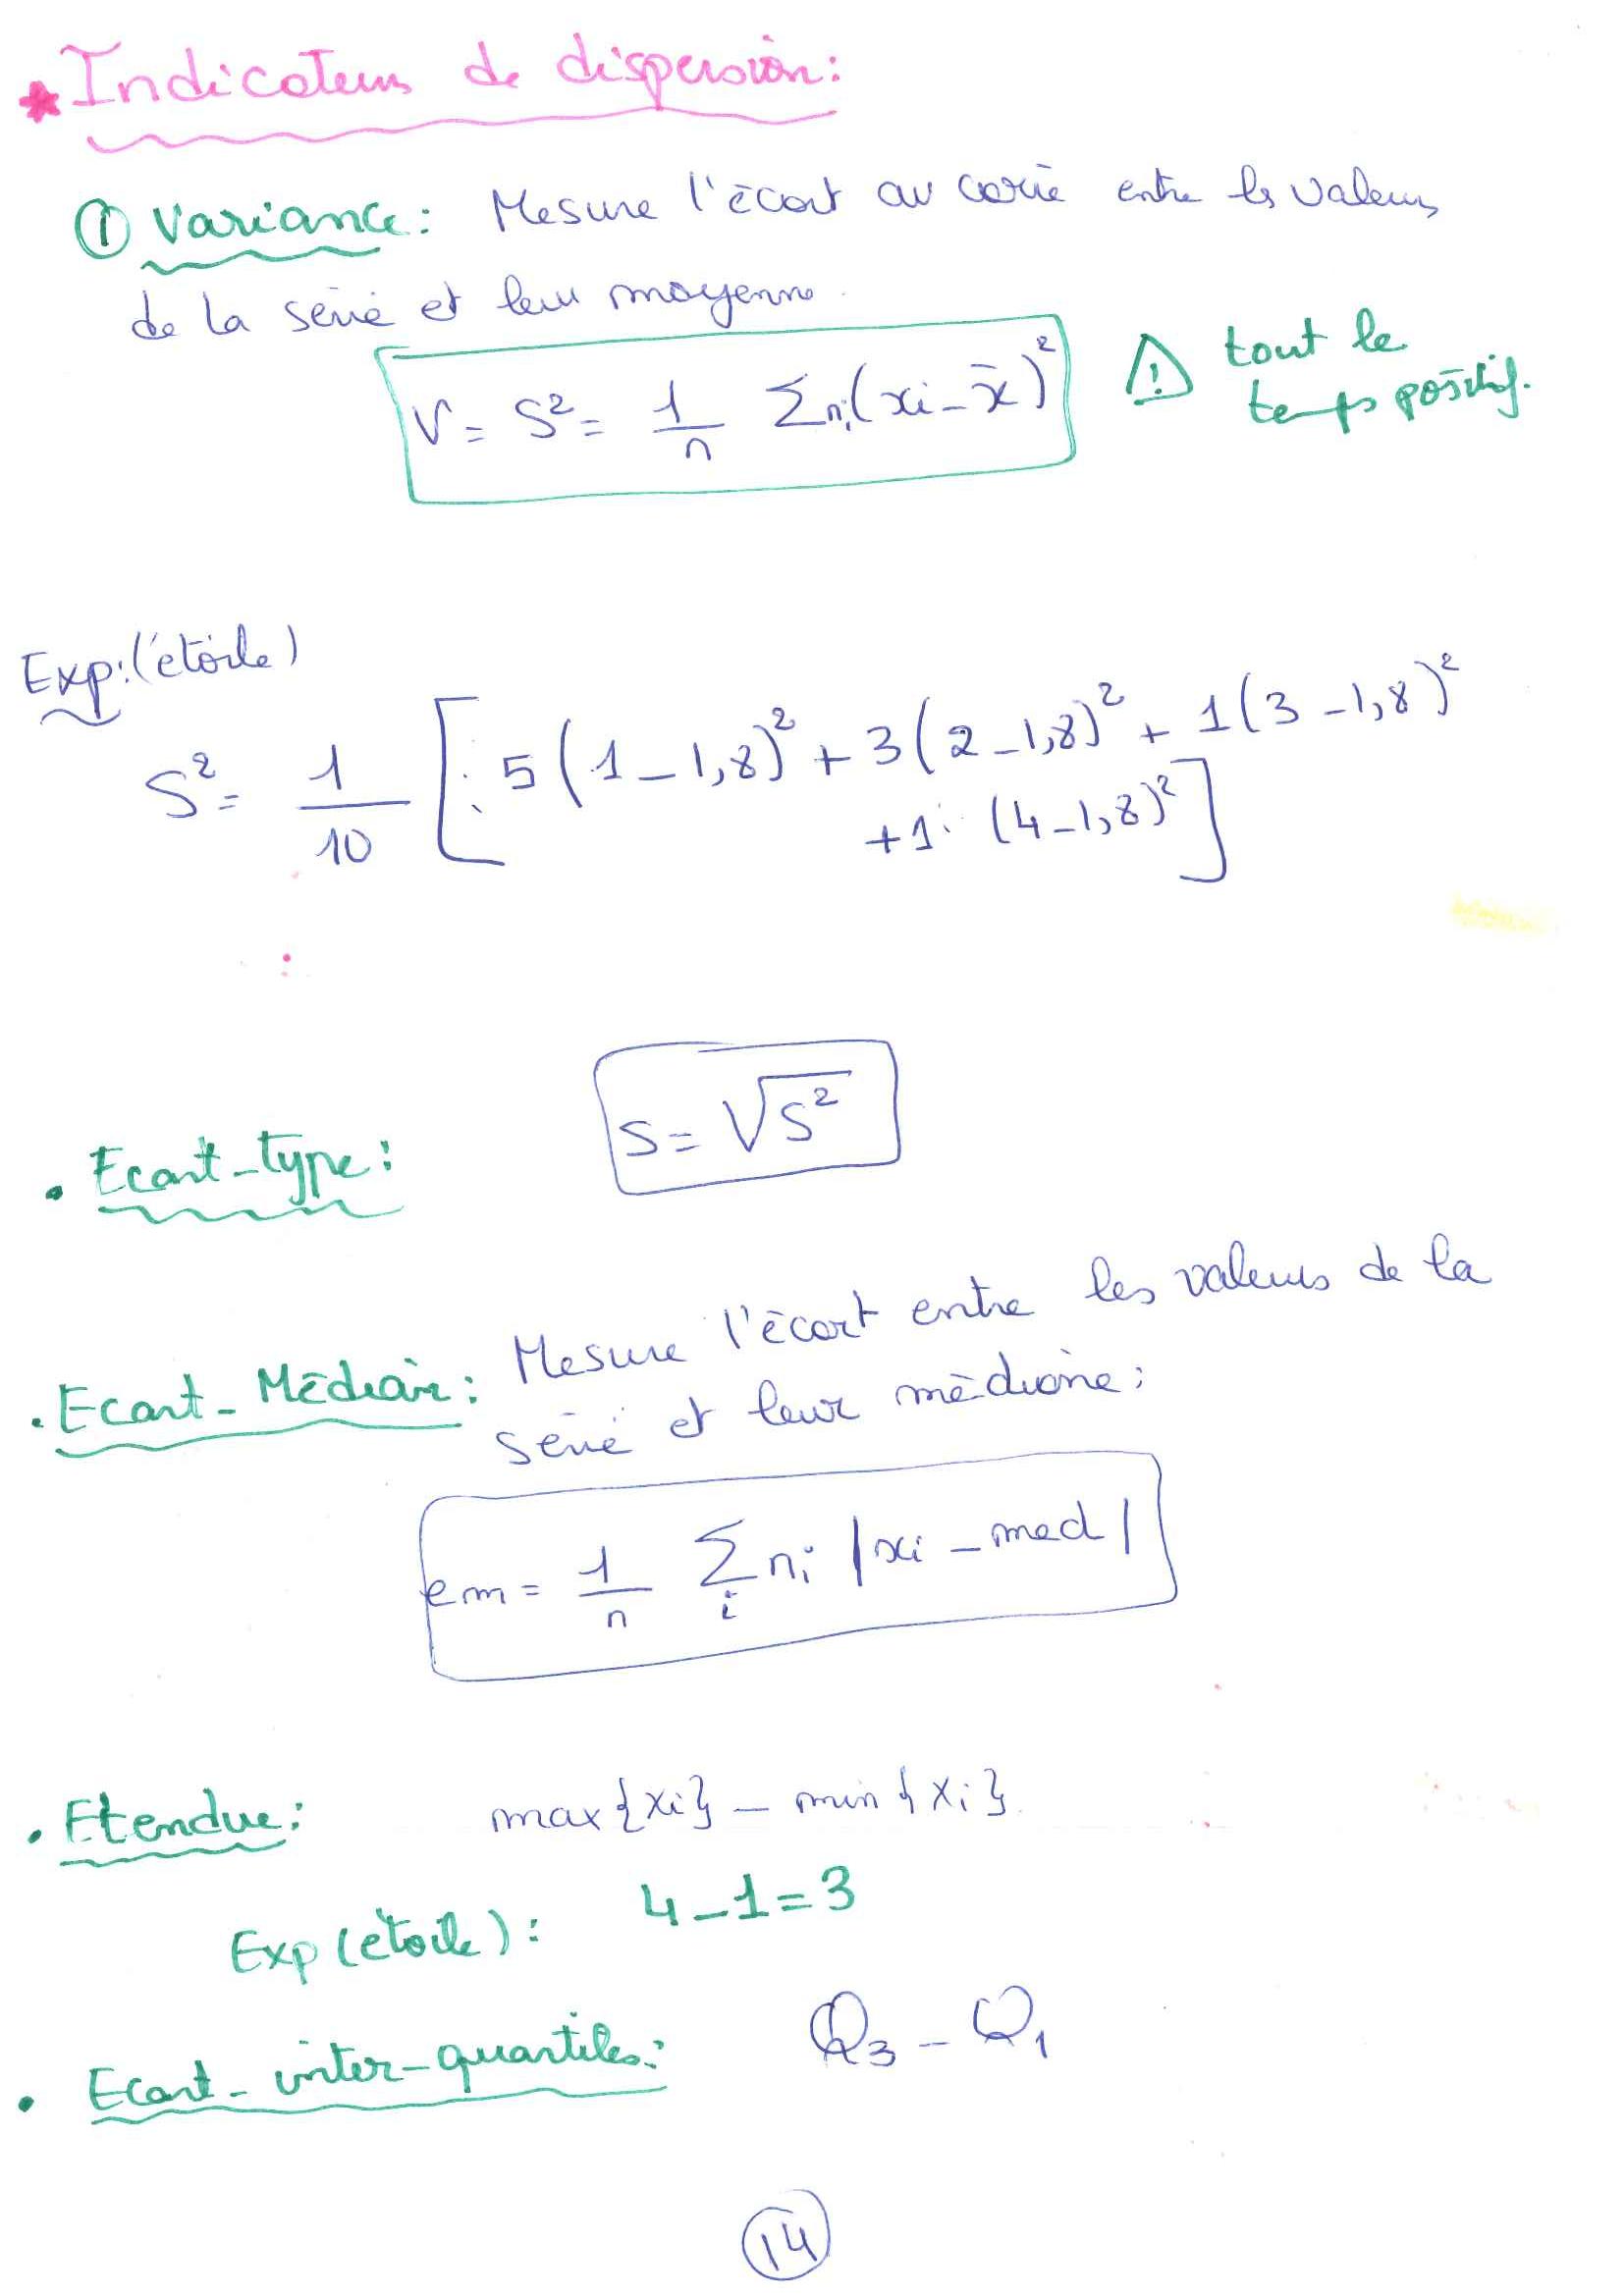 * Indicateurs de dispersion:
① Variance: Mesure l'écart au carré entre les valeurs
de la série et leur moyenne.
V = S² = 1/n Σ nᵢ(xi - x̄)²
⚠ tout le
temps positif.
Exp: (étoile)
S² = 1/10 [5(1-1,8)² + 3(2-1,8)² + 1(3-1,8)²
+1. (4-1,8)²]
• Ecart-type: S = √S²
• Ecart-Médian: Mesure l'écart entre les valeurs de la
série et leur médiane:
em = 1/n Σᵢ nᵢ |xi - med|
• Etendue: max{xi} - min{xi}
Exp (étoile): 4-1=3
• Ecart-inter-quartiles: Q₃ - Q₁
14